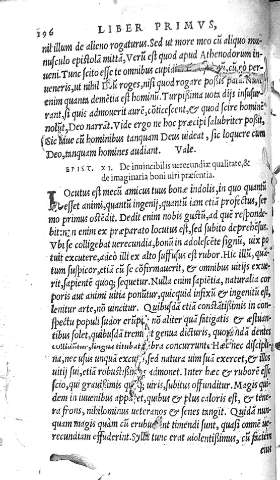 196 LIBER PRIMVS,
nit illum de alieno rogaturus. Sed ut more meo cũ aliquo mu-
nusculo epistolã mittã, Verũ est quod apud Athenodorum in-
ueni. Tunc scito esse te omnibus cupi
ueneris, ut nihil Deũ roges, nisi quod rogare possis palã. Nunc
enim quanta demẽtia est hominũ? Turpissima uota dijs insusur-
rant, si quis admouerit aurẽ, cõticescent, & quod scire hominẽ
nolũt, Deo narrãt. Vide ergo ne hoc præcipi salubriter possit,
Sic uiue cũ hominibus tanquam Deus uideat, sic loquere cum
Deo, tanquam homines audiant. Vale.
EPIST. XI. De inuincibilis uerecundiæ qualitate, &
de imaginaria boni uiri præsentia.
LOcutus est mecũ amicus tuus bonæ indolis, in quo quantũ
esset animi, quantũ ingenij, quantũ iam etiã profectus, ser
mo primus ostẽdit. Dedit enim nobis gustũ, ad quẽ respõde-
bit: non enim ex præparato locutus est, sed subito deprehẽsus.
Vbi se colligebat uerecundia, bonũ in adolescẽte signũ, uix po
tuit excutere, adeò illi ex alto suffusus est rubor. Hic illũ, quã-
tum suspicor, etiã cũ se cõfirmauerit, & omnibus uitijs exue-
rit, sapientẽ quoq; sequetur. Nulla enim sapiẽtia, naturalia cor
poris aut animi uitia ponũtur, quicquid infixũ & ingenitũ est,
lenitur arte, nõ uincitur. Quibusdã etiã constãtissimis in con-
spectu populi sudor erũpit, nõ aliter quã fatigatis & æstuan-
tibus solet, quibusdã tremunt genua dicturis, quorũdã dentes
colliduntur, lingua titubat, labra concurrunt. Hæc nec discipli
na, nec usus unquã excutit, sed natura uim suã exercet, & illos
uitij sui, etiã robustissimos admonet. Inter hæc & ruborẽ esse
scio, qui grauissimis quoq; uiris, subitus offunditur. Magis qui-
dem in iuuenibus apparet, quibus & plus caloris est, & tene-
ra frons, nihilominus ueteranos & senes tangit. Quidã nun-
quam magis quam cũ erubuerint timendi sunt, quasi omnẽ ue-
recundiam effuderint. Sylla tunc erat uiolentissimus, cũ faciem
eius